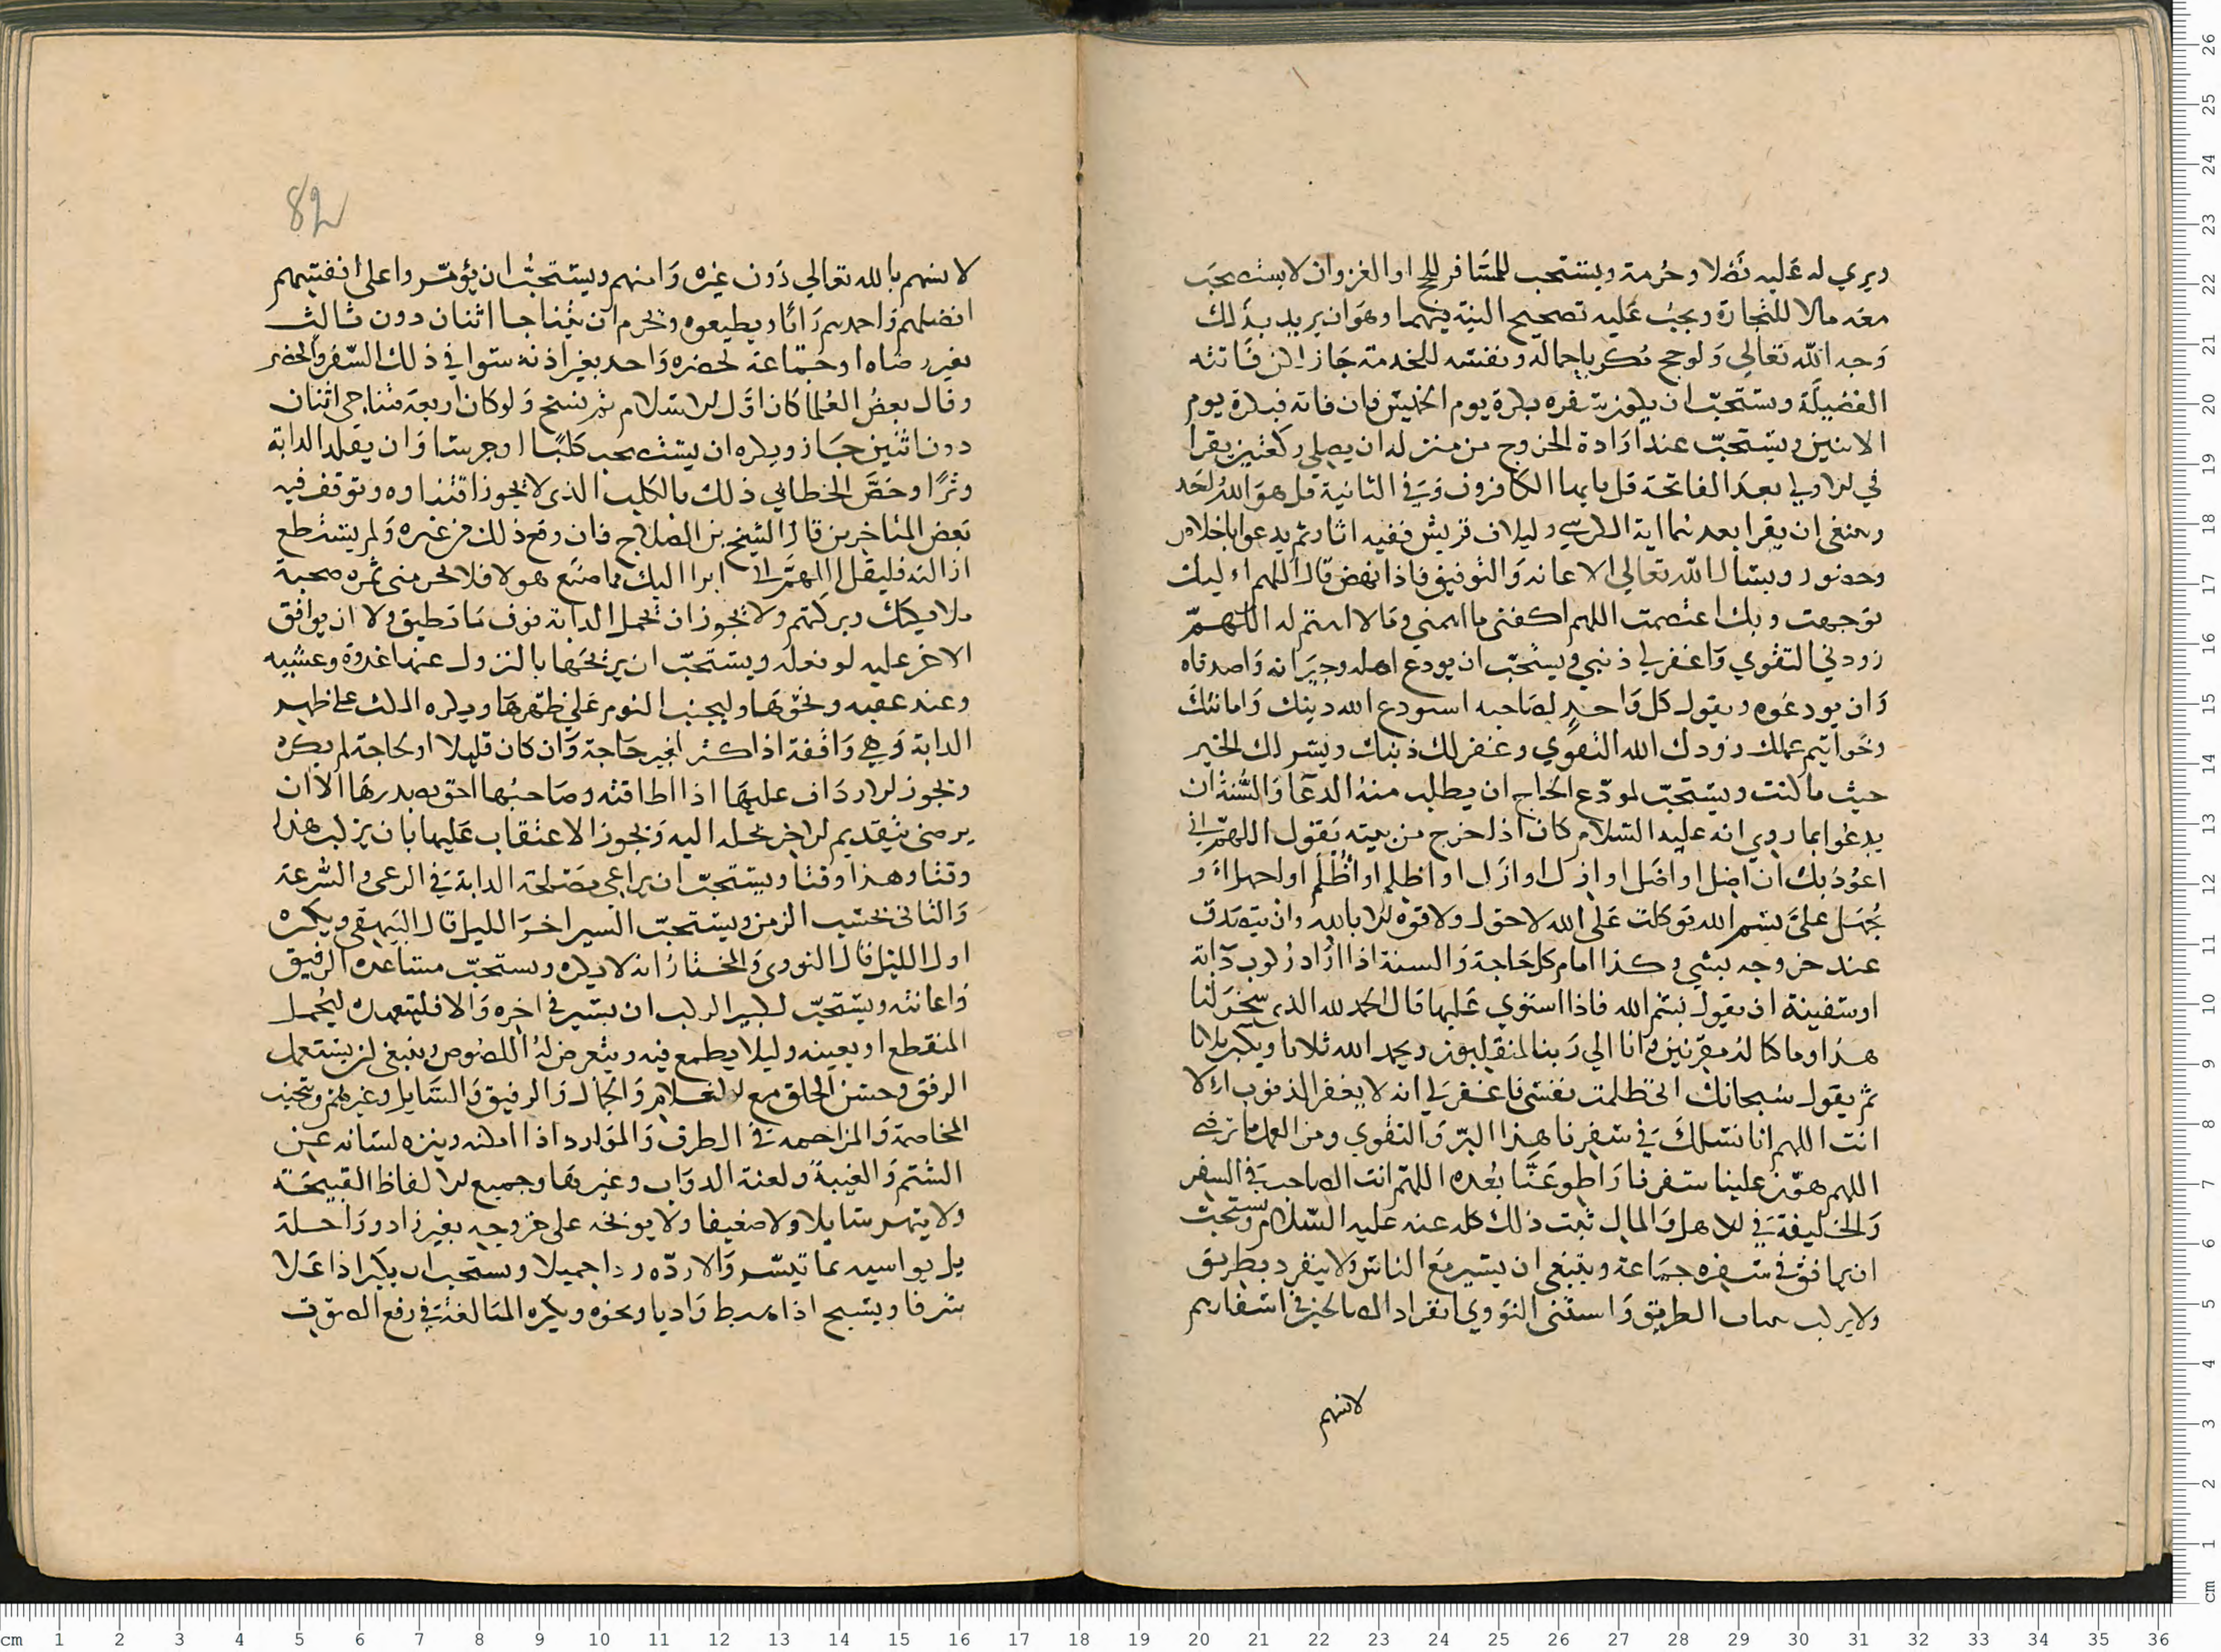 ويري له عليه فضلا وحرمة ويستحب للمسافر للحج او الغزو ان لا يستصحب
معه مالا للتجارة ويجب عليه تصحيح النية فيهما وهو ان يريد بذلك
وجه الله تعالي ولو حج مكر باجماله ونفسه للخدمة جاز لكن فاتته
الفضيلة ويستحب ان يكون سفره بكرة يوم الخميس فان فاته فبكرة يوم
الاثنين ويستحب عند ارادة الخروج من منزله ان يصلي ركعتين يقرا
في الاولي بعد الفاتحة قل يايها الكافرون وفي الثانية قل هو الله احد
وينبغي ان يقرا بعدهما اية الكرسي ولايلاف قريش ففيه اثار ثم يدعوا باخلاص
وحضور ويسال الله تعالي الاعانه والتوفيق فاذا نهض قال اللهم اليك
توجهت وبك اعتصمت اللهم اكفني ما اهمني وما لا اهتم له اللهم
زودني التقوي واغفر لي ذنبي ويستحب ان يودع اهله وجيرانه واصدقاه
وان يودعوه ويقول كل واحد لصاحبه استودع الله دينك وامانتك
وخواتيم عملك زودك الله التقوي وغفر لك ذنبك ويسر لك الخير
حيث ما كنت ويستحب لمودع الحاج ان يطلب منه الدعا والسنة ان
يدعوا بما روي انه عليه السلام كان اذا خرج من بيته يقول اللهم اني
اعوذ بك ان اضل او اضل او ازل او ازل او اظلم او اظلم او اجهل او
يجهل علي بسم الله توكلت علي الله لا حول ولا قوة الا بالله وان يتصدق
عند خروجه بشي وكذا امام كل حاجة والسنة اذا اراد ركوب دابة
او سفينة ان يقول بسم الله فاذا استوي عليها قال الحمد لله الذي سخر لنا
هذا وما كنا له مقرنين وانا الي ربنا لمنقلبون ويحمد الله ثلاثا ويكبر ثلاثا
ثم يقول سبحانك اني ظلمت نفسي فاغفر لي انه لا يغفر الذنوب الا
انت اللهم انا نسلك في سفرنا هذا البر والتقوي ومن العمل ما ترضي
اللهم هون علينا سفرنا واطو عنا بعده اللهم انت الصاحب في السفر
والخليفة في الاهل والمال ثبت ذلك كله عنه عليه السلام ويستحب
ان يرافق في سفره جماعة وينبغي ان يسير مع الناس ولا ينفرد بطريق
ولا يركب الطريق واستثني النووي انفراد الصالحين في اسفارهم
لانسهم
82
لانسهم بالله تعالي دون غيره وامنهم ويستحب ان يؤمروا علي انفسهم
افضلهم واحدهم رايا ويطيعوه ويحرم ان يتناجا اثنان دون ثالث
بغير رضاه او جماعة لحضره واحد بغير اذنه سوا في ذلك السفر والحضر
وقال بعض العلما كان اول الاسلام ثم نسخ ولو كان اربعة فتناجي اثنان
دون اثنين جاز ويكره ان يستصحب كلبا او جرسا وان يقلد الدابة
وترا وخص الخطابي ذلك بالكلب الذي لا يجوز اقتناوه وتوقف فيه
بعض المتاخرين قال الشيخ بن الصلاح فان وقع ذلك من غيره ولم يستطع
ازالته فليقل اللهم اني ابرا اليك مما صنع هولا فلا تحرمني ثمره صحبة
ملايكتك وبركتهم ولا يجوز ان تحمل الدابة فوق ما تطيق ولا ان يوافق
الاخر عليه لو فعله ويستحب ان يريحها بالنزول عنها غدوة وعشية
وعند عقبه ونحوها وليجنب النوم علي ظهرها ويكره المكث علي ظهر
الدابة وهي واقفة اذا كثر لغير حاجة وان كان قليلا او لحاجة لم يكره
ويجوز الارداف عليها اذا اطاقته وصاحبها احق بصدرها الا ان
يرضي بتقديم الاخر اليه ويجوز الاعتقاب عليها بان يركب هذا
وقتا وهذا وقتا ويستحب ان يراعي مصلحة الدابة في الرعي والسرعة
والتاني بحسب الزمن ويستحب السير اخر الليل قال البيهقي ويكره
اول الليل قال النووي والمختار انه لا يكره ويستحب مساعدة الرفيق
واعانته ويستحب لكبير الركب ان يسير في اخره والا فليتعهدهم ليحمل
المنقطع او يعينه وليلا يطمع فيه ويتعرض له اللصوص وينبغي ان يستعمل
الرفق وحسن الخلق مع الغلام والجمال والرفيق والسايل وغيرهم ويتجنب
المخاصمة والمزاحمة في الطرق والموارد اذا امكنه وينزه لسانه عن
الشتم والغيبة ولعنة الدواب وغيرها وجميع الالفاظ القبيحة
ولا ينهر سايلا ولا ضعيفا ولا يوبخه علي خروجه بغير زاد وراحلة
بل يواسيه بما تيسر والا رده ردا جميلا ويستحب ان يكبر اذا علا
شرفا ويسبح اذا هبط واديا ونحوه ويكره المبالغة في رفع الصوت